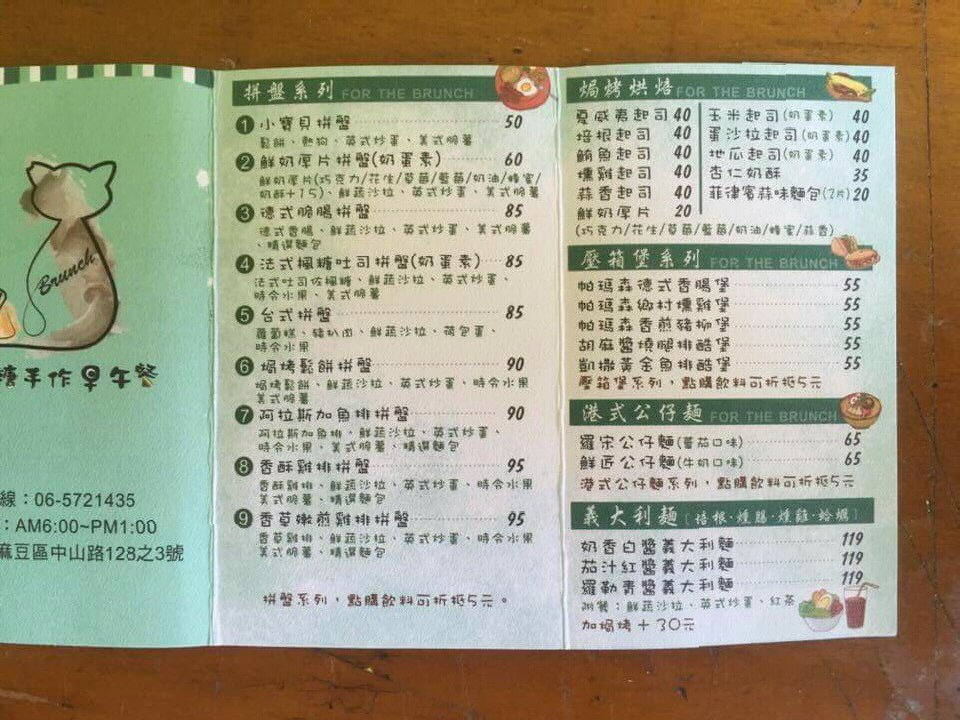 Brunch
手作早午餐
線：06-5721435
：AM6:00~PM1:00
麻豆區中山路128之3號
拼盤系列 FOR THE BRUNCH
1 小寶貝拼盤 50
鬆餅、熱狗、英式炒蛋、美式脆薯
2 鮮奶厚片拼盤(奶蛋素) 60
鮮奶厚片(巧克力/花生/草莓/藍莓/奶油/蜂蜜/
奶酥+15)、鮮蔬沙拉、英式炒蛋、美式脆薯
3 德式脆腸拼盤 85
德式香腸、鮮蔬沙拉、英式炒蛋、美式脆薯
、精選麵包
4 法式楓糖吐司拼盤(奶蛋素) 85
法式吐司佐楓糖、鮮蔬沙拉、英式炒蛋、
時令水果、美式脆薯
5 台式拼盤 85
蘿蔔糕、豬扒肉、鮮蔬沙拉、荷包蛋、
時令水果
6 焗烤鬆餅拼盤 90
焗烤鬆餅、鮮蔬沙拉、英式炒蛋、時令水果
美式脆薯
7 阿拉斯加魚排拼盤 90
阿拉斯加魚排、鮮蔬沙拉、英式炒蛋、
時令水果、美式脆薯、精選麵包
8 香酥雞排拼盤 95
香酥雞排、鮮蔬沙拉、英式炒蛋、時令水果
美式脆薯、精選麵包
9 香草嫩煎雞排拼盤 95
香草雞排、鮮蔬沙拉、英式炒蛋、時令水果
美式脆薯、精選麵包
拼盤系列，點購飲料可折抵5元。
焗烤烘焙 FOR THE BRUNCH
夏威夷起司 40
培根起司 40
鮪魚起司 40
燻雞起司 40
蒜香起司 40
鮮奶厚片 20
玉米起司(奶蛋素) 40
蛋沙拉起司(奶蛋素) 40
地瓜起司(奶蛋素) 40
杏仁奶酥 35
菲律賓蒜味麵包(2片) 20
(巧克力/花生/草莓/藍莓/奶油/蜂蜜/蒜香)
壓箱堡系列 FOR THE BRUNCH
帕瑪森德式香腸堡 55
帕瑪森鄉村燻雞堡 55
帕瑪森香煎豬柳堡 55
胡麻醬燒腿排酷堡 55
凱撒黃金魚排酷堡 55
壓箱堡系列，點購飲料可折抵5元
港式公仔麵 FOR THE BRUNCH
羅宋公仔麵(蕃茄口味) 65
鮮匠公仔麵(牛奶口味) 65
港式公仔麵系列，點購飲料可折抵5元
義大利麵 [ 培根·燻腸·燻雞·蛤蠣 ]
奶香白醬義大利麵 119
茄汁紅醬義大利麵 119
羅勒青醬義大利麵 119
附餐：鮮蔬沙拉、英式炒蛋、紅茶
加焗烤＋30元